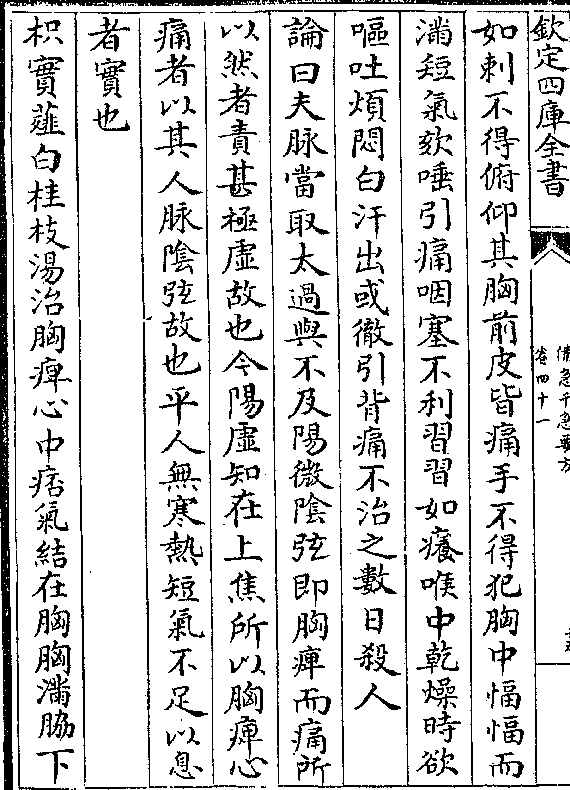 欽定四庫全書
備急千急要方
卷四十一
如刺不得俯仰其胸前皮皆痛手不得犯胸中愊愊而
滿短氣欬唾引痛咽塞不利習習如癢喉中乾燥時欲
嘔吐煩悶白汗出或徹引背痛不治之數日殺人
論曰夫脉當取太過與不及陽微陰弦即胸痺而痛所
以然者責其極虛故也今陽虛知在上焦所以胸痺心
痛者以其人脉陰弦故也平人無寒熱短氣不足以息
者實也
枳實薤白桂枝湯治胸痺心中痞氣結在胸胸滿脇下